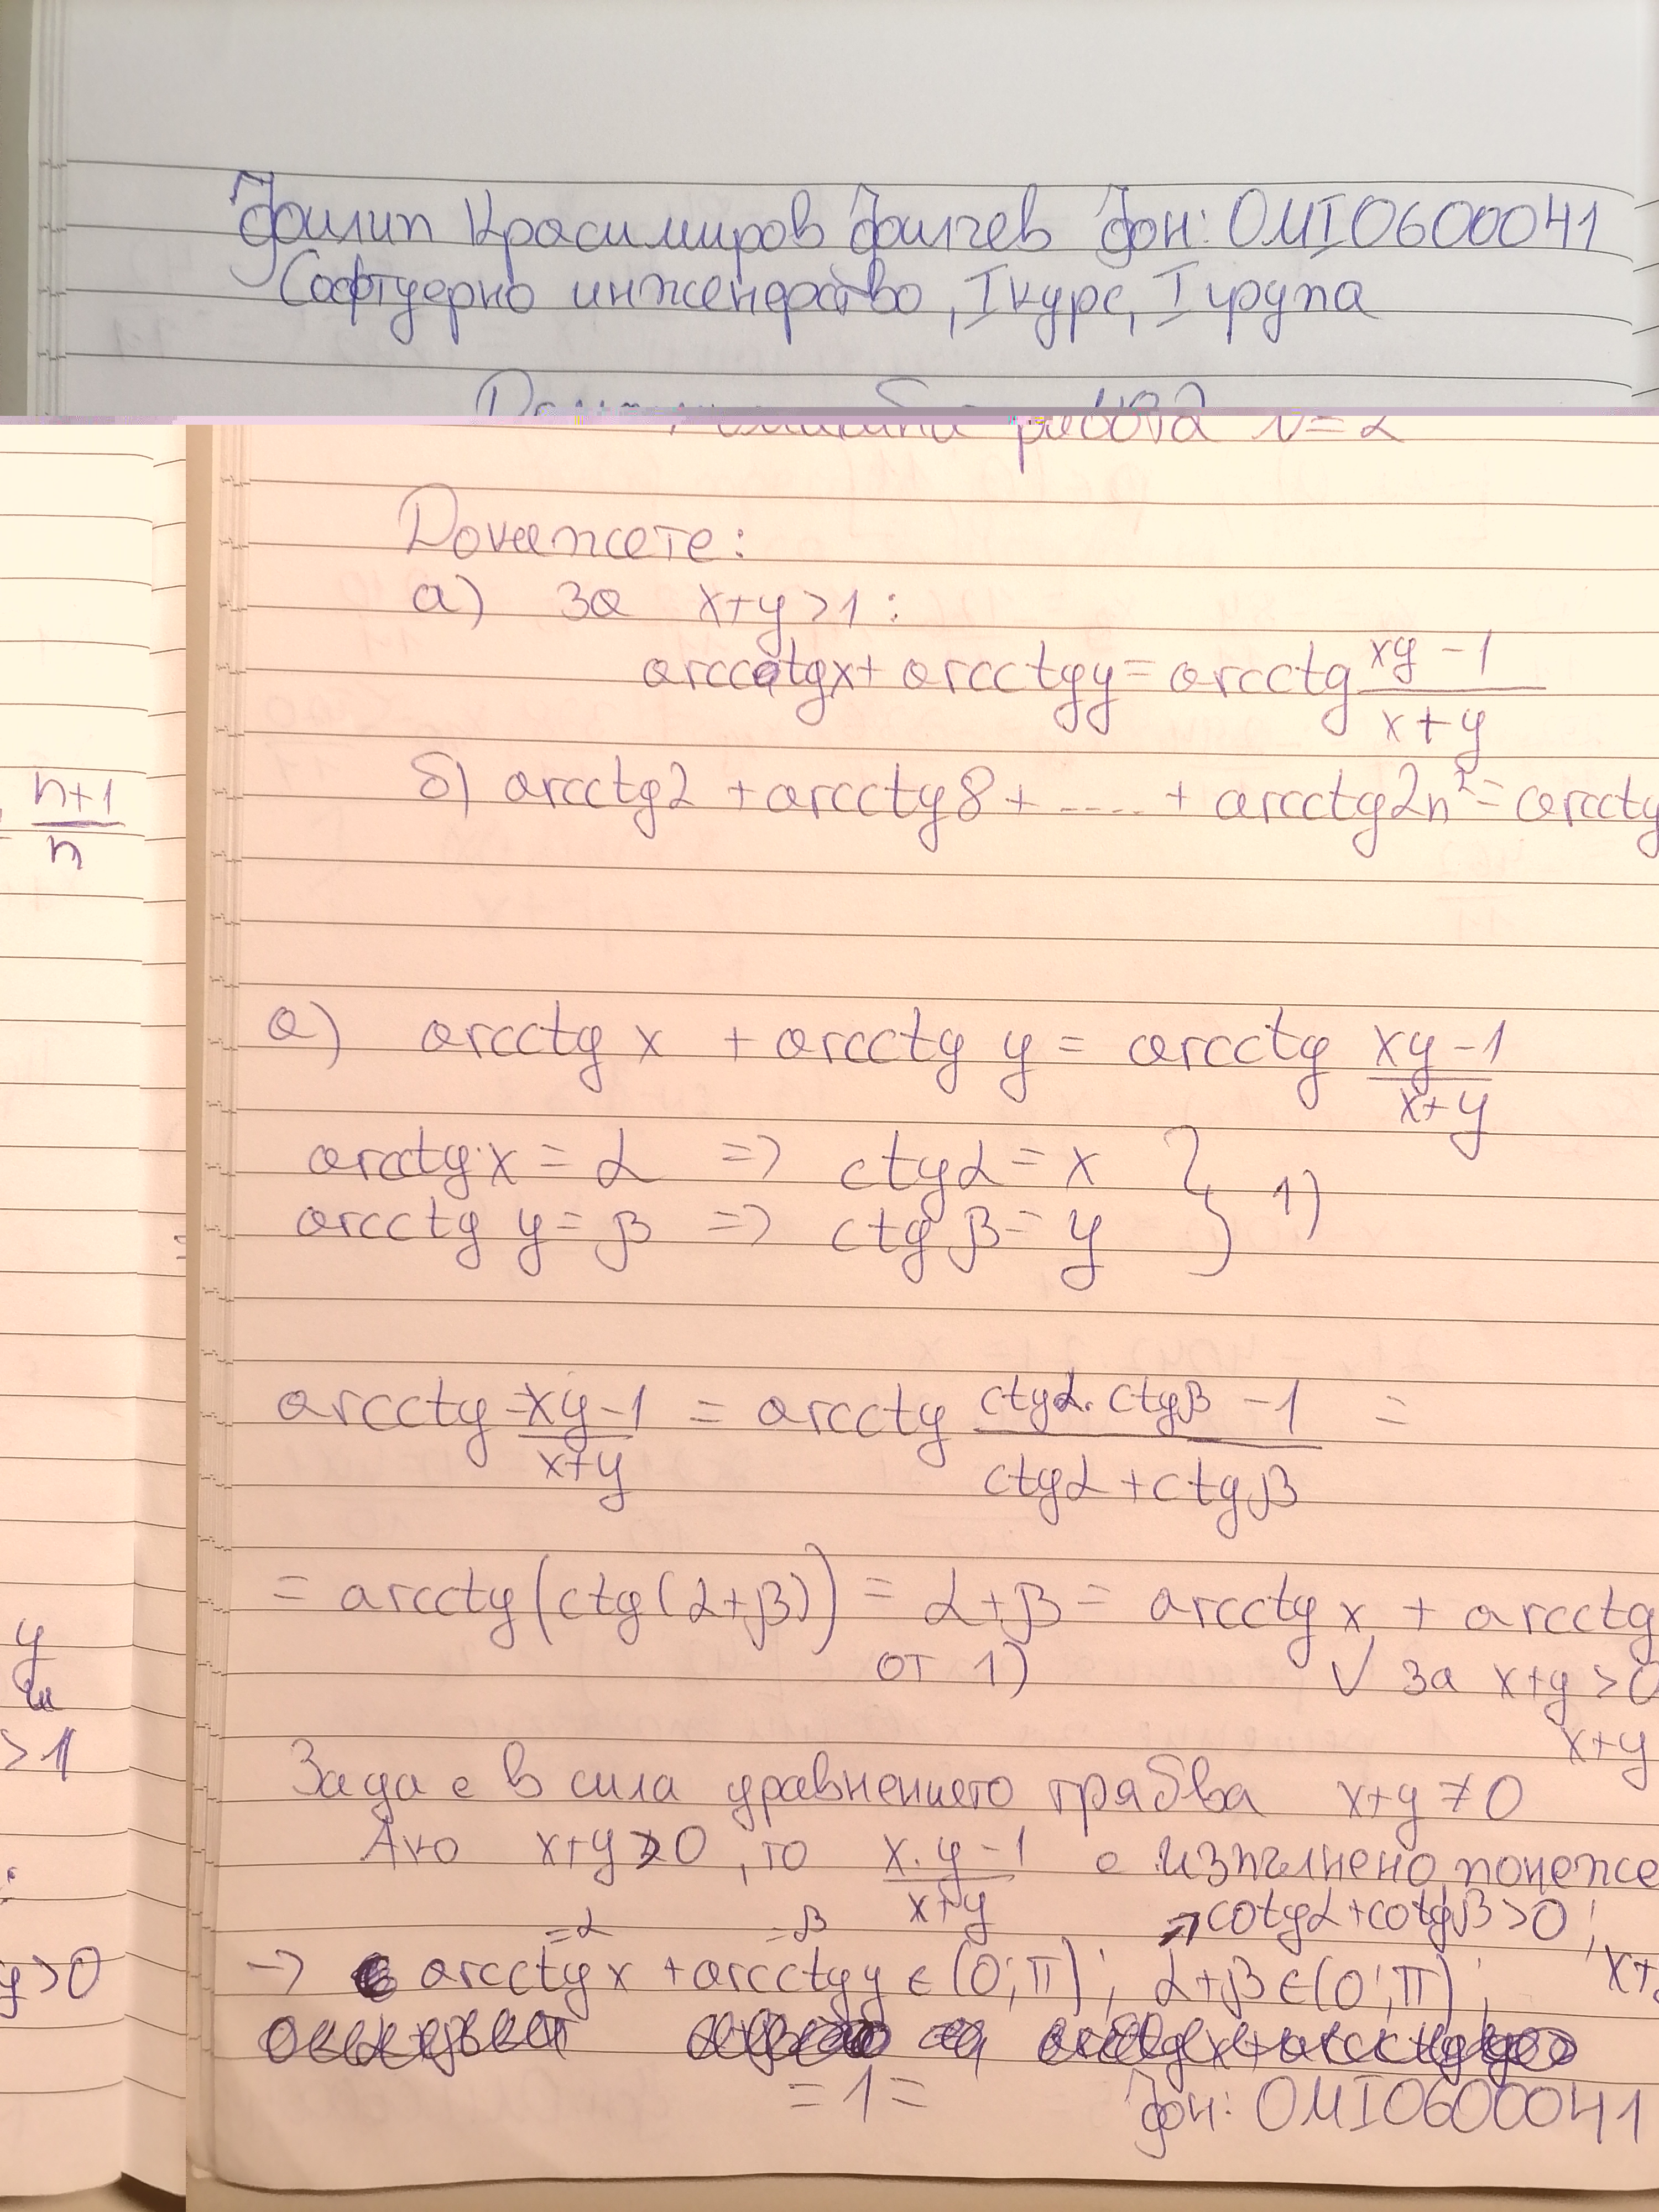 Филип Красимиров Филчев фн: 0MI0600041
Софтуерно инженерство, I курс, I група
Домашна работа №2
Докажете:
а) За x+y>1:
arccotgx + arcctgy = arcctg \frac{xy-1}{x+y}
б) arcctg2 + arcctg8 + ..... + arcctg2n² = arcctg
\frac{n+1}{n}
а) arcctg x + arcctg y = arcctg \frac{xy-1}{x+y}
arcctg x = α => ctgα = x } 1)
arcctg y = β => ctg β = y
arcctg \frac{xy-1}{x+y} = arcctg \frac{ctgα. ctgβ -1}{ctgα + ctgβ} =
= arcctg(ctg(α+β)) = α+β = arcctg x + arcctg
от 1) √ за x+y>0
x+y
За да е в сила уравнението трябва x+y≠0
Ако x+y>0, то \frac{x.y-1}{x+y} е изпълнено, понеже
→cotgα+cotgβ>0;
=α =β
→ arcctgx + arcctgy ∈ (0;π); α+β ∈ (0;π); x+
=1= фн: 0MI0600041
y
>1
y>0